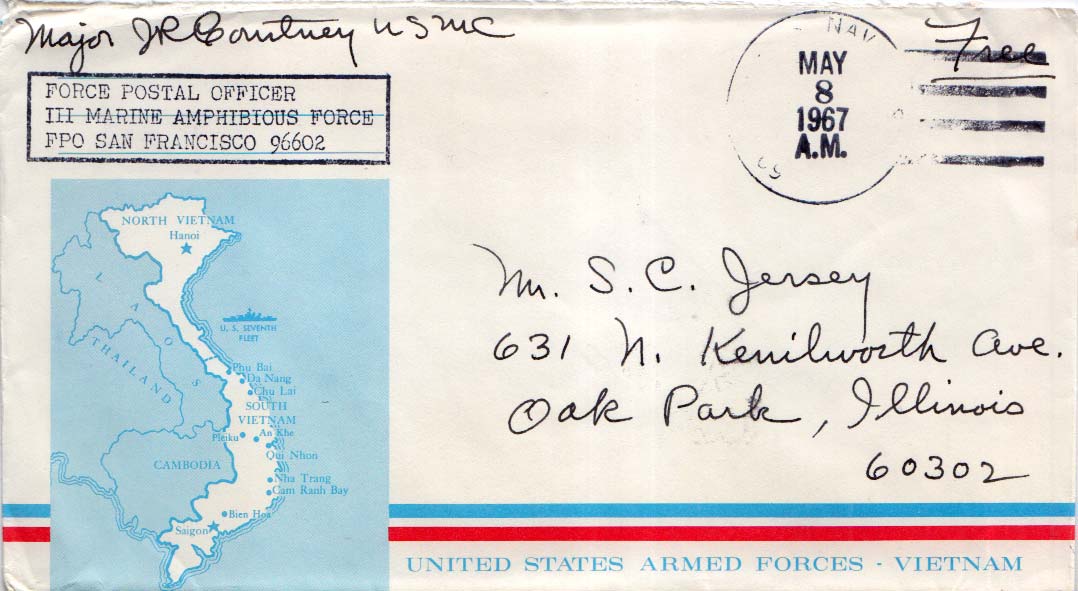 Major JR Courtney USMC
FORCE POSTAL OFFICER
III MARINE AMPHIBIOUS FORCE
FPO SAN FRANCISCO 96602
NAV
MAY
8
1967
A.M.
Free
Mr. S. C. Jersey
631 N. Kenilworth Ave.
Oak Park, Illinois
60302
NORTH VIETNAM
Hanoi
LAOS
THAILAND
U. S. SEVENTH
FLEET
Phu Bai
Da Nang
Chu Lai
SOUTH
VIETNAM
Pleiku
An Khe
Qui Nhon
CAMBODIA
Nha Trang
Cam Ranh Bay
Bien Hoa
Saigon
UNITED STATES ARMED FORCES · VIETNAM